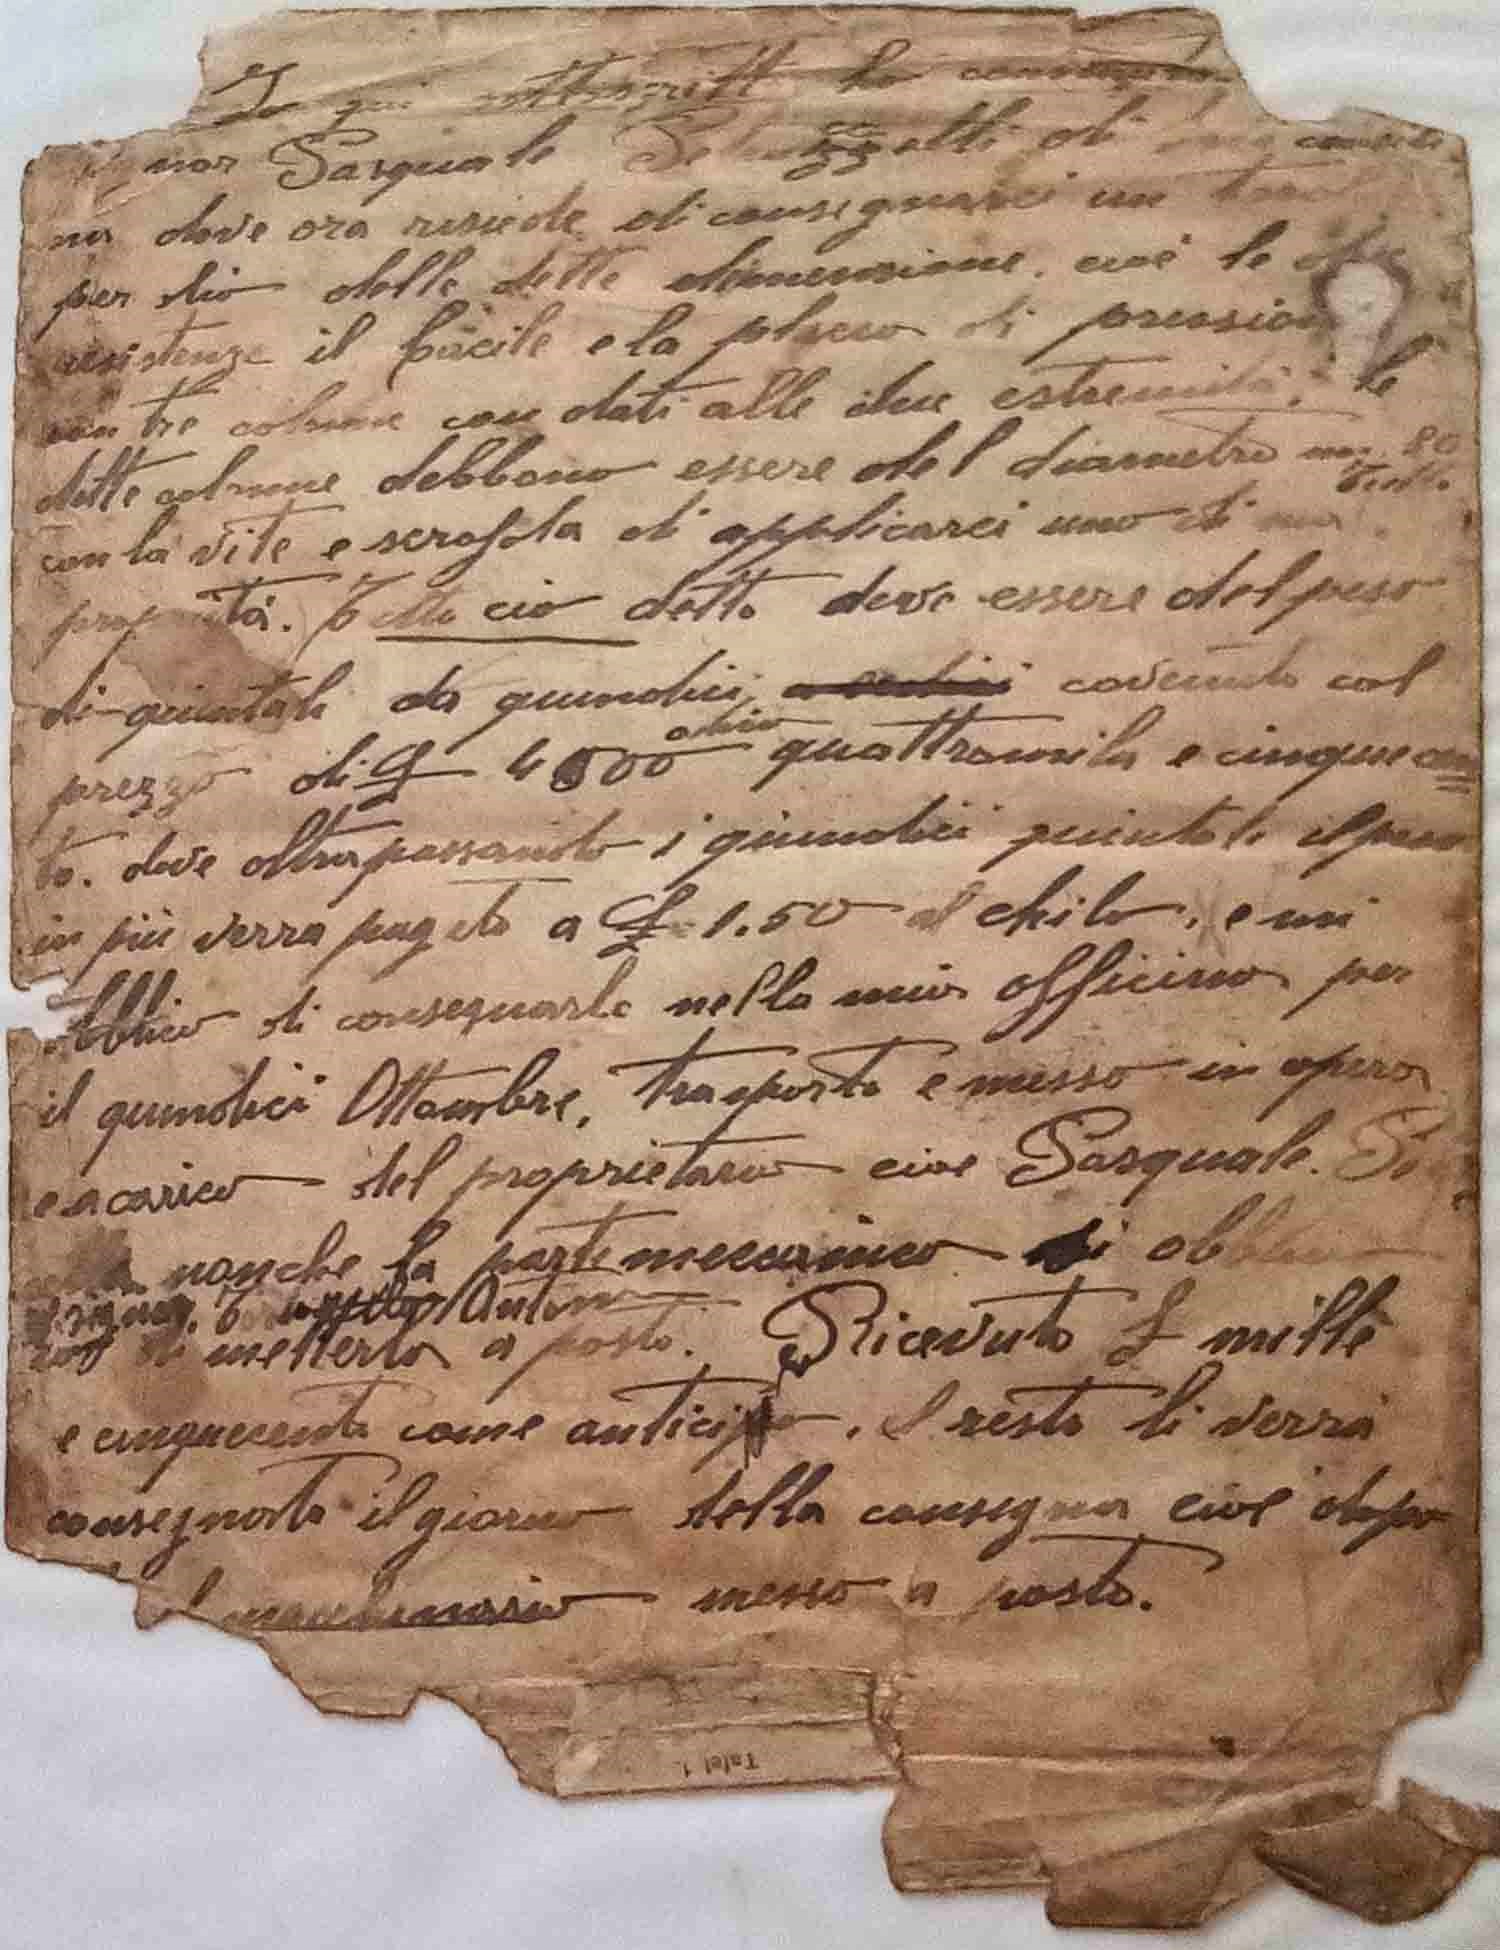 Io qui sottoscritto ho
nor Pasquale di
na dove ora resiede di consegnarci un
per olio delle dette dimenzione. cioè le due
resistenze il bacile e la placca di pression
con tre colonne con dati alle due estremità; le
dette colonne debbono essere del diametro m. 80
tutto
con la vite e scrofola di applicarci uno di mia
proprietà. Tutto cio detto deve essere del peso
di quintali da quindici, covenuto col
prezzo di £ 4500 dico quattromila e cinquecen
to. dove oltrapassando i quindici quintali il peso
in più verra pagato a £ 1.50 al chilo, e mi
obblico di consegnarlo nella mia officina per
il quindici Ottombre, trasporto e messo in opera
e a carico del proprietario cioe Pasquale. Pe
nonche la parte meccanica si obblica
Antonio
di metterla a posto. Ricevuto £ mille
e cinquecento come anticipo. Il resto li verrà
consegnato il giorno della consegna cioè dopo
il macchinario messo a posto.
Tafel 1.